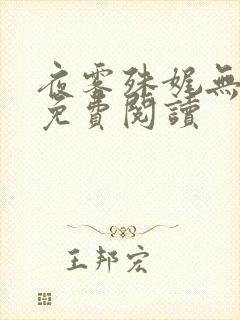 夜零殊娓無
免費閱讀
王邦宏